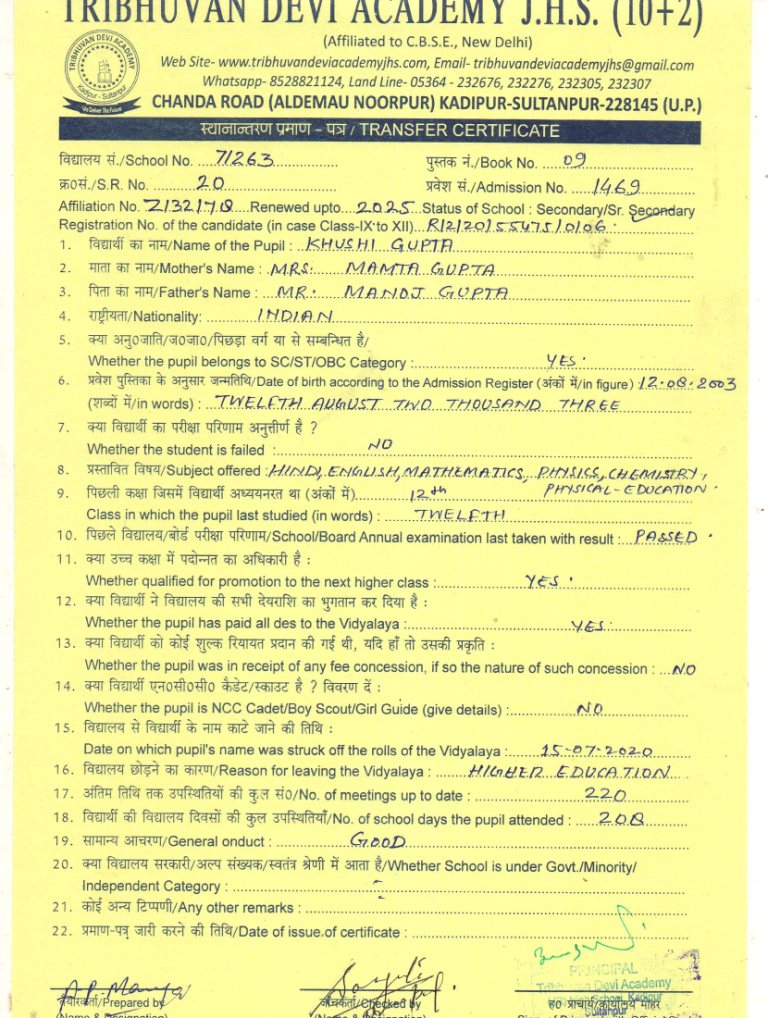 TRIBHUVAN DEVI ACADEMY J.H.S. (10+2)
(Affiliated to C.B.S.E., New Delhi)
Web Site- www.tribhuvandeviacademyjhs.com, Email- tribhuvandeviacademyjhs@gmail.com
Whatsapp- 8528821124, Land Line- 05364 - 232676, 232276, 232305, 232307
CHANDA ROAD (ALDEMAU NOORPUR) KADIPUR-SULTANPUR-228145 (U.P.)
TRIBHUVAN DEVI ACADEMY
Kadipur - Sultanpur
We Deliver The Future
स्थानान्तरण प्रमाण - पत्र / TRANSFER CERTIFICATE
विद्यालय सं./School No. 71263 पुस्तक नं./Book No. 09
क्र०सं./S.R. No. 20 प्रवेश सं./Admission No. 1469
Affiliation No. 2132178 Renewed upto 2025 Status of School : Secondary/Sr. Secondary
Registration No. of the candidate (in case Class-IX to XII) R/2/20/55475/0106.
1. विद्यार्थी का नाम/Name of the Pupil : KHUSHI GUPTA
2. माता का नाम/Mother's Name : MRS. MAMTA GUPTA
3. पिता का नाम/Father's Name : MR. MANOJ GUPTA
4. राष्ट्रीयता/Nationality: INDIAN
5. क्या अनु०जाति/ज०जा०/पिछड़ा वर्ग या से सम्बन्धित है/
Whether the pupil belongs to SC/ST/OBC Category : YES.
6. प्रवेश पुस्तिका के अनुसार जन्मतिथि/Date of birth according to the Admission Register (अंकों में/in figure) 12-08-2003
(शब्दों में/in words) : TWELFTH AUGUST TWO THOUSAND THREE
7. क्या विद्यार्थी का परीक्षा परिणाम अनुत्तीर्ण है ?
Whether the student is failed : NO
8. प्रस्तावित विषय/Subject offered : HINDI, ENGLISH, MATHEMATICS, PHYSICS, CHEMISTRY,
PHYSICAL-EDUCATION.
9. पिछली कक्षा जिसमें विद्यार्थी अध्ययनरत था (अंकों में) 12th
Class in which the pupil last studied (in words) : TWELFTH
10. पिछले विद्यालय/बोर्ड परीक्षा परिणाम/School/Board Annual examination last taken with result : PASSED.
11. क्या उच्च कक्षा में पदोन्नत का अधिकारी है :
Whether qualified for promotion to the next higher class : YES.
12. क्या विद्यार्थी ने विद्यालय की सभी देयराशि का भुगतान कर दिया है :
Whether the pupil has paid all des to the Vidyalaya : YES.
13. क्या विद्यार्थी को कोई शुल्क रियायत प्रदान की गई थी, यदि हाँ तो उसकी प्रकृति :
Whether the pupil was in receipt of any fee concession, if so the nature of such concession : NO
14. क्या विद्यार्थी एन०सी०सी० कैडेट/स्काउट है ? विवरण दें :
Whether the pupil is NCC Cadet/Boy Scout/Girl Guide (give details) : NO
15. विद्यालय से विद्यार्थी के नाम काटे जाने की तिथि :
Date on which pupil's name was struck off the rolls of the Vidyalaya : 15-07-2020
16. विद्यालय छोड़ने का कारण/Reason for leaving the Vidyalaya : HIGHER EDUCATION
17. अंतिम तिथि तक उपस्थितियों की कुल सं०/No. of meetings up to date : 220
18. विद्यार्थी की विद्यालय दिवसों की कुल उपस्थितियाँ/No. of school days the pupil attended : 208
19. सामान्य आचरण/General onduct : GOOD
20. क्या विद्यालय सरकारी/अल्प संख्यक/स्वतंत्र श्रेणी में आता है/Whether School is under Govt./Minority/
Independent Category :
21. कोई अन्य टिप्पणी/Any other remarks :
22. प्रमाण-पत्र जारी करने की तिथि/Date of issue of certificate :
PRINCIPAL
Tribhuvan Devi Academy
Kadipur
Sultanpur
तैयारकर्ता/Prepared by जाँचकर्ता/Checked by ह० प्राचार्य/कार्यालय मोहर
(Name & Designation) (Name & Designation)